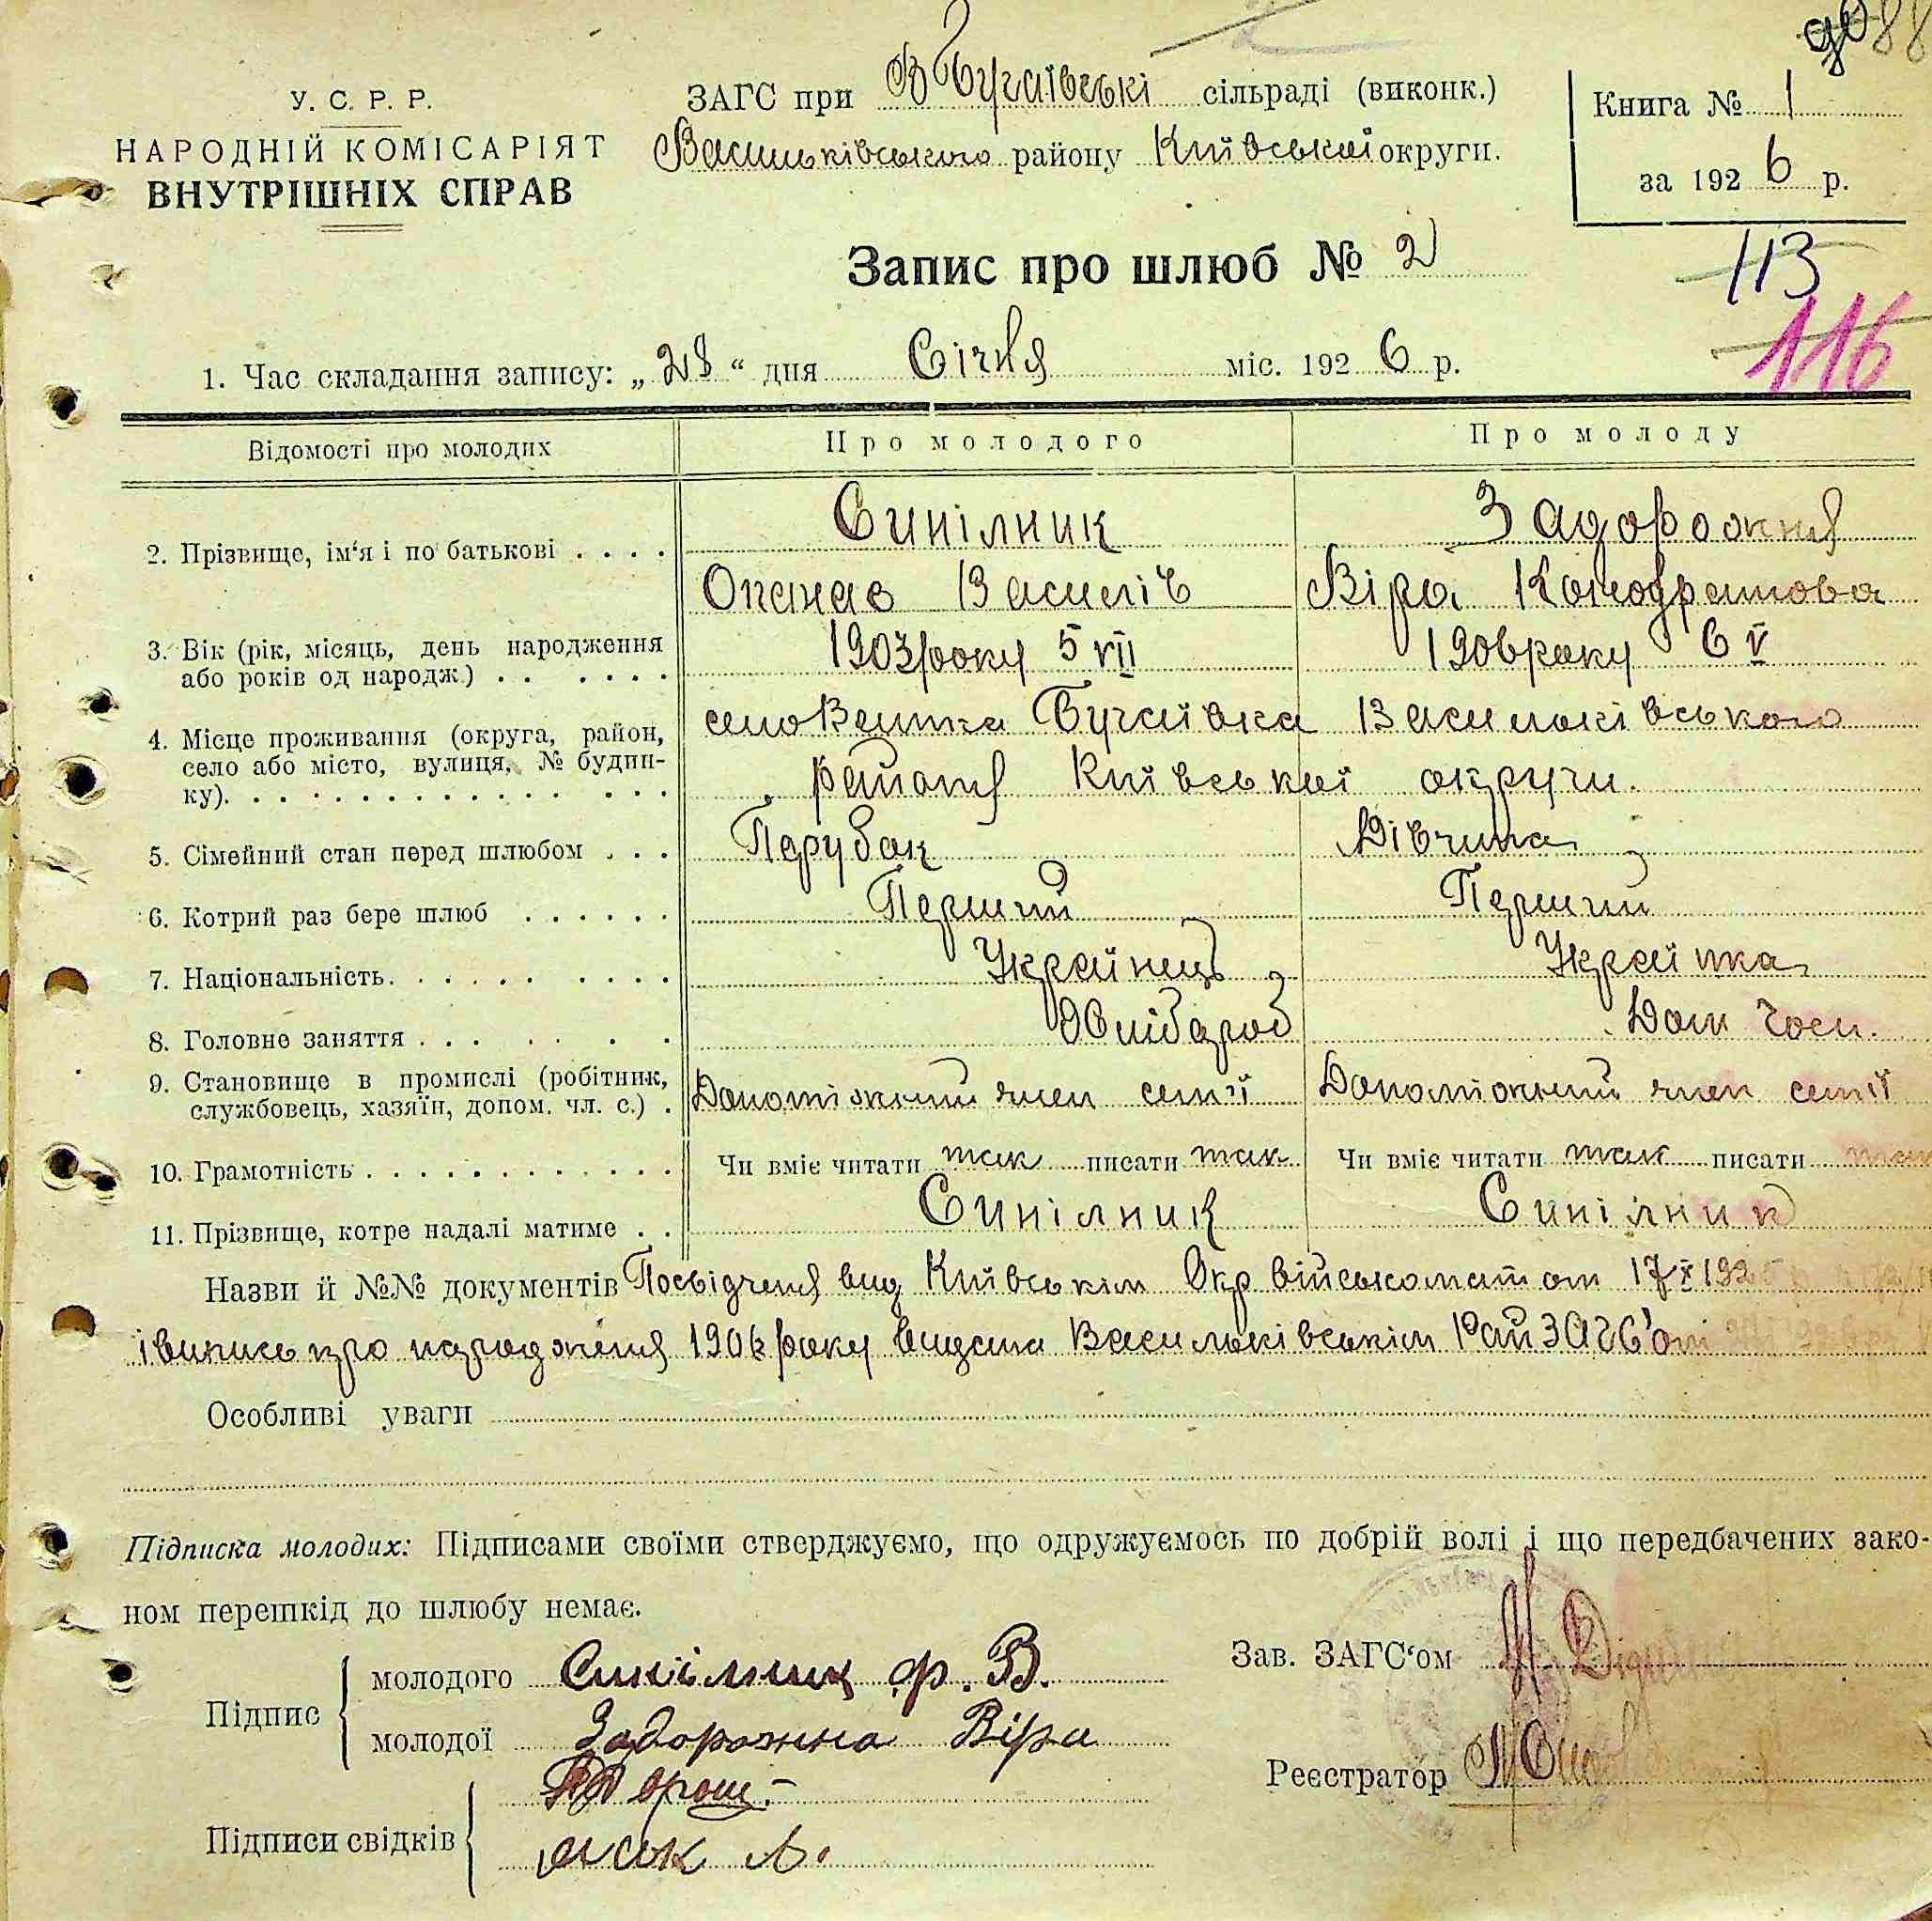 У. С. Р. Р.
НАРОДНІЙ КОМІСАРІЯТ
ВНУТРІШНІХ СПРАВ
ЗАГС при В Бугаївські сільраді (виконк.)
Васильківського району Київської округи.
Книга № 1
за 1926 р.
Запис про шлюб № 2
113
116
1. Час складання запису: „28“ дня Січня міс. 1926 р.
Відомості про молодих Про молодого Про молоду
2. Прізвище, ім‘я і по батькові . . . . Синілник Задорожня
Опанас Василів Віра Кондратова
3. Вік (рік, місяць, день народження 1903 року 5 VII 1906 року 6 V
або років од народж.) . . . . . .
4. Місце проживання (округа, район, село Велика Бугаївка Васильківського
село або місто, вулиця, № будин-
ку). . . . . . . . . . . . . . . района Київської округи.
5. Сімейний стан перед шлюбом . . . Парубок Дівчина
6. Котрий раз бере шлюб . . . . . . Перший Перший
7. Національність. . . . . . . . . . Українець Українка
8. Головне заняття . . . . . . . Хлібороб Дом Госп.
9. Становище в промислі (робітник,
службовець, хазяїн, допом. чл. с.) . Допоміжний член семії Допоміжний член семії
10. Грамотність . . . . . . . . . . . . Чи вміє читати так писати так Чи вміє читати так писати так
11. Прізвище, котре надалі матиме . . Синілник Синілник
Назви й №№ документів Посвідченя вид Київськім Окр військоматом 17 X 192
і випись про народженя 1906 року видана Васильківськім РайЗАГС'ом
Особливі уваги
Підписка молодих: Підписами своїми стверджуємо, що одружуємось по добрій волі і що передбачених зако-
ном перешкід до шлюбу немає.
Підпис
молодого Синілник Ф. В.
молодої Задорожна Віра
Підписи свідків
Зав. ЗАГС‘ом
Реєстратор